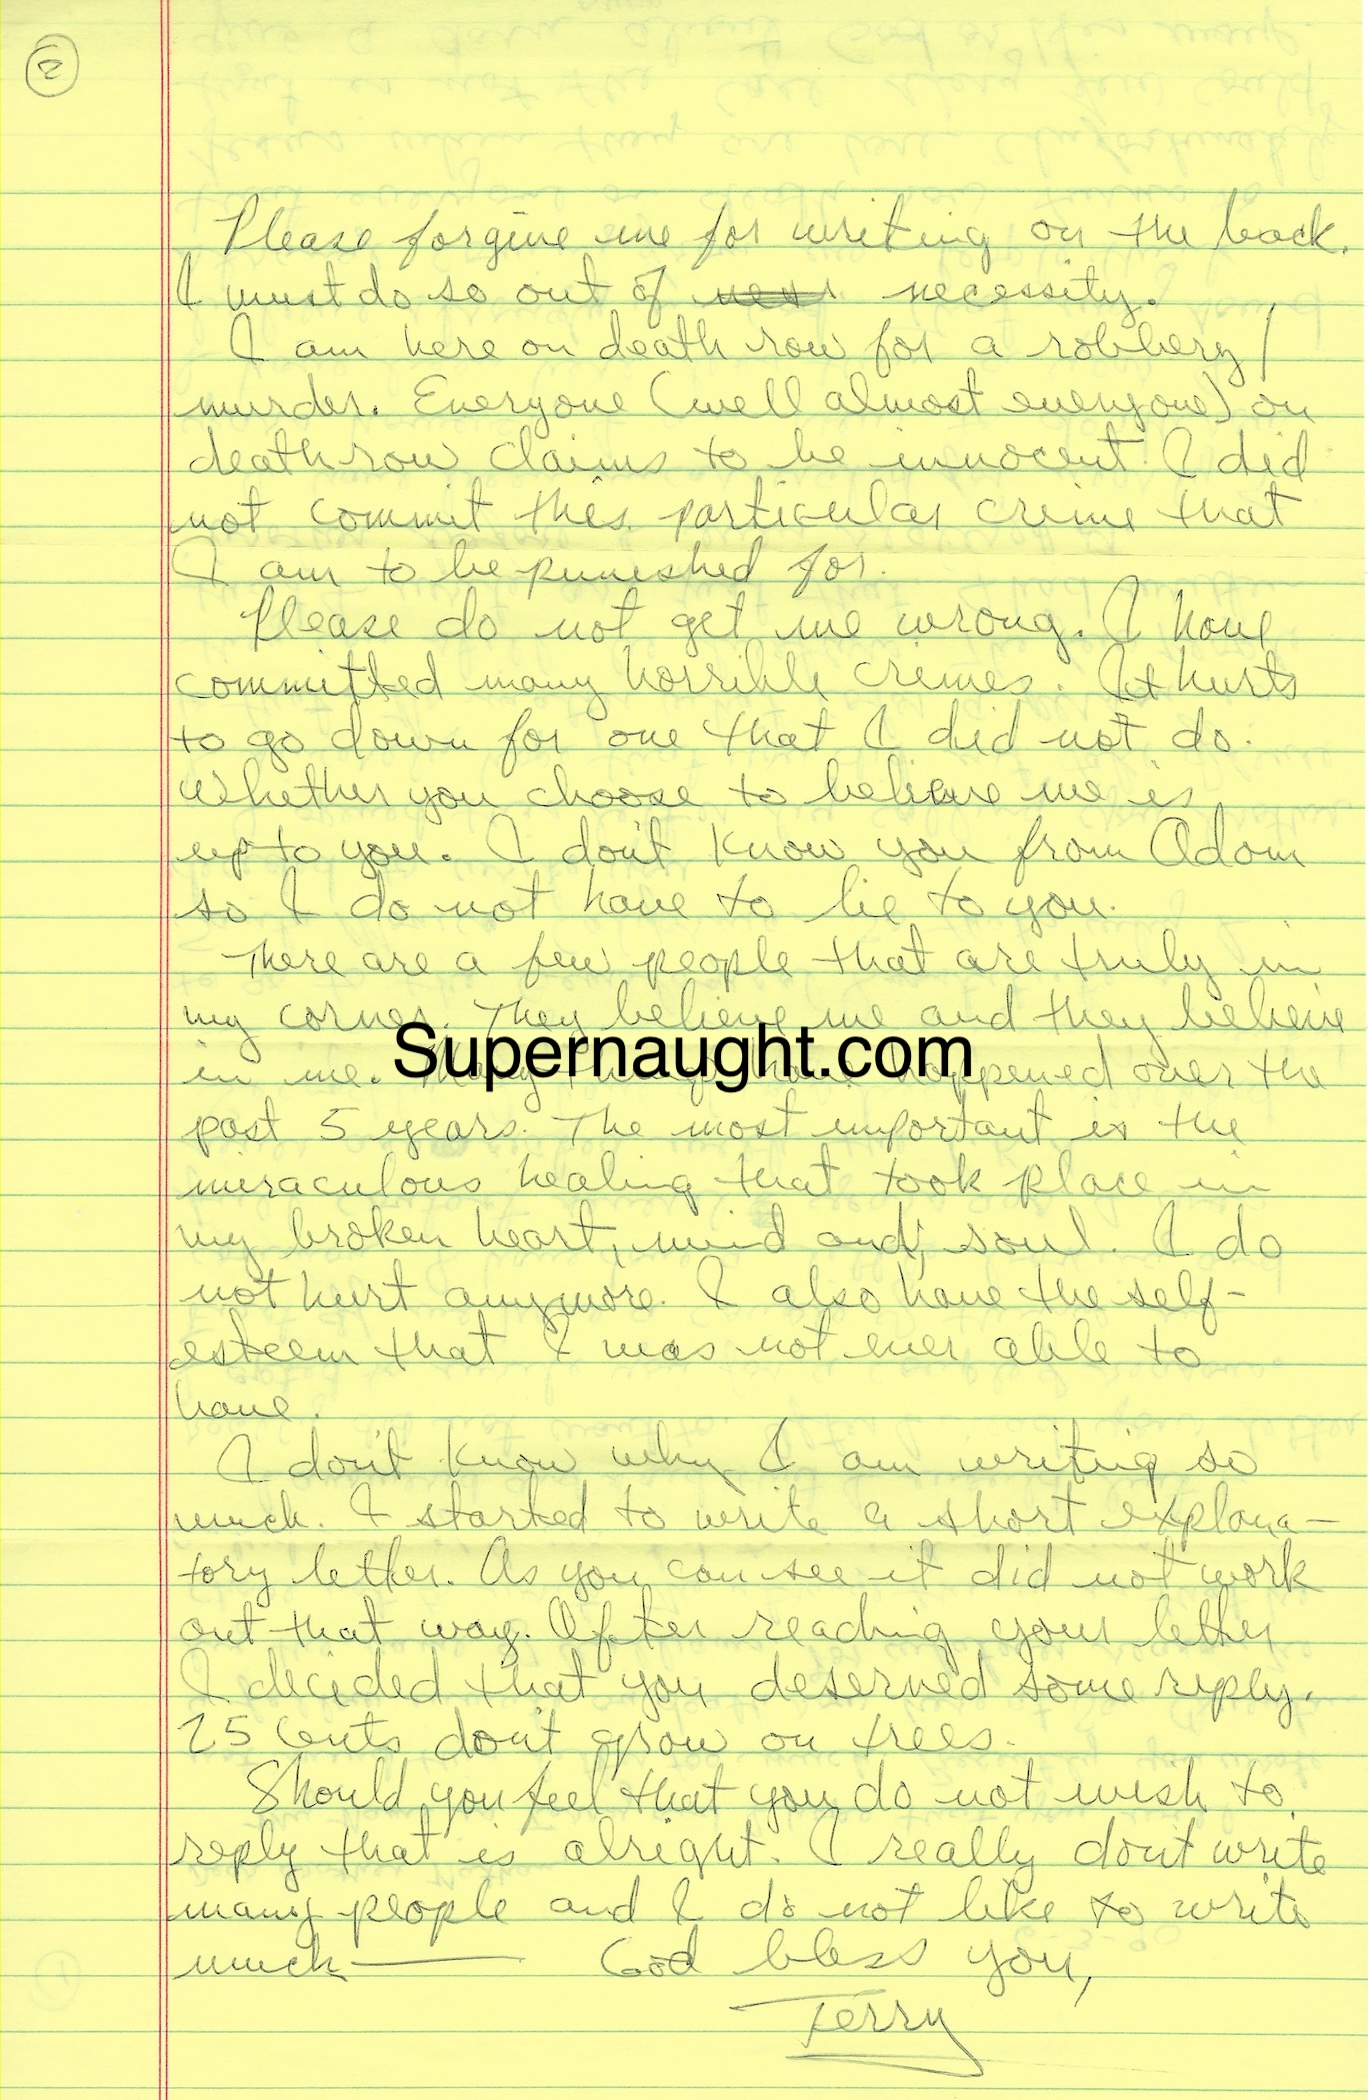 2
Please forgive me for writing on the back.
I must do so out of necessity.
I am here on death row for a robbery/
murder. Everyone (well almost everyone) on
deathrow claims to be innocent. I did
not commit this particular crime that
I am to be punished for.
Please do not get me wrong. I have
committed many horrible crimes. It hurts
to go down for one that I did not do.
Whether you choose to believe me is
up to you. I don't know you from Adam
so I do not have to lie to you.
There are a few people that are truly in
my corner. They believe me and they believe
Supernaught.com
in me. Many things have happened over the
past 5 years. The most important is the
miraculous healing that took place in
my broken heart, mind and, soul. I do
not hurt anymore. I also have the self-
esteem that I was not ever able to
have.
I don't know why I am writing so
much. I started to write a short explana-
tory letter. As you can see it did not work
out that way. After reading your letter
I decided that you deserved some reply.
25 Cents don't grow on trees.
Should you feel that you do not wish to
reply that is alright. I really don't write
many people and I do not like to write
much— God bless you,
Terry